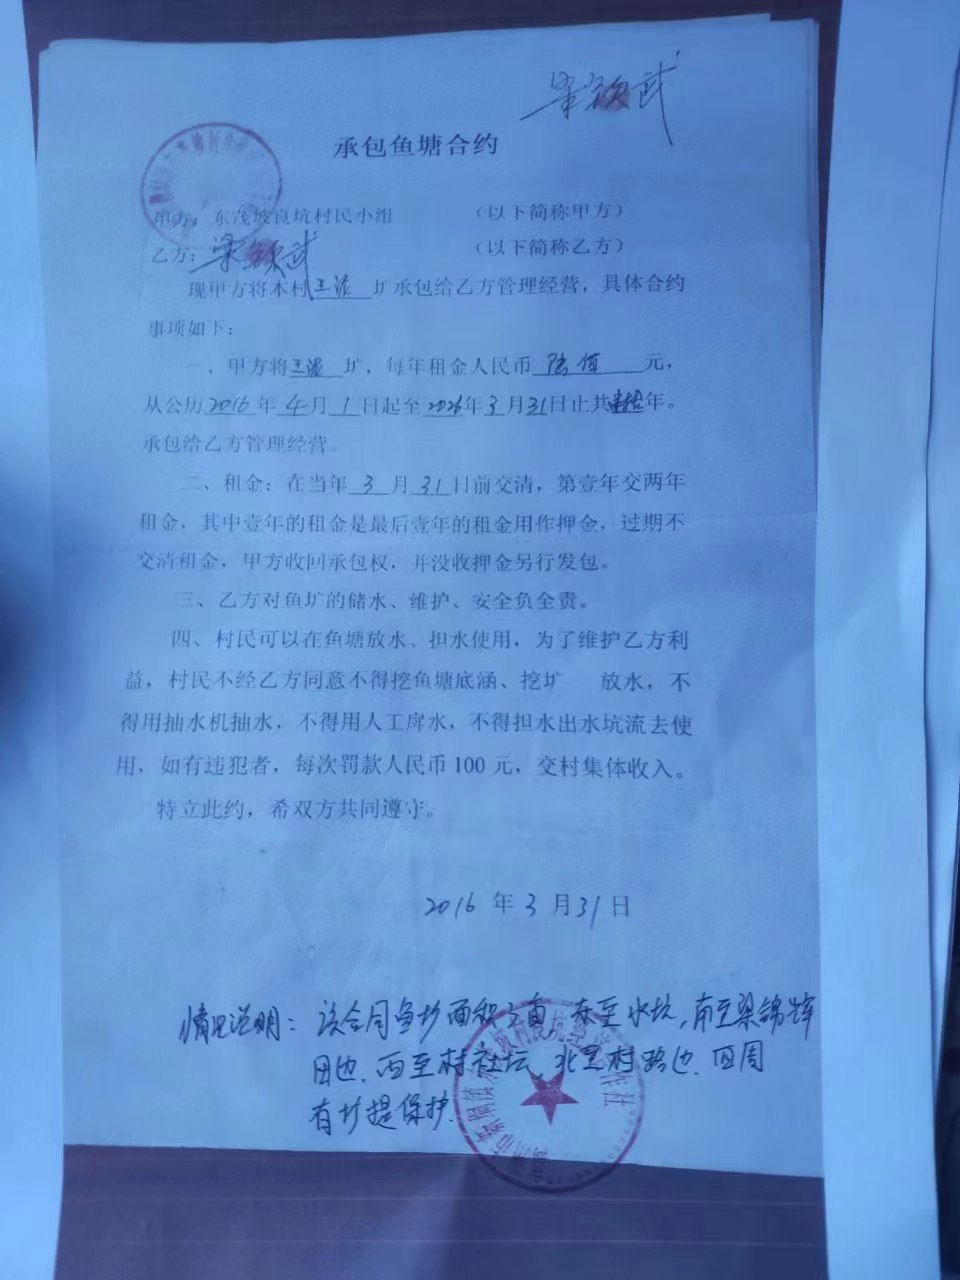 梁领武
承包鱼塘合约
甲方：东茂坡良坑村民小组 （以下简称甲方）
乙方：梁领武 （以下简称乙方）
现甲方将本村三泥圹承包给乙方管理经营，具体合约
事项如下：
一、甲方将三泥圹，每年租金人民币陆佰元，
从公历2016年4月1日起至2026年3月31日止共壹拾年。
承包给乙方管理经营。
二、租金：在当年3月31日前交清，第壹年交两年
租金，其中壹年的租金是最后壹年的租金用作押金，过期不
交清租金，甲方收回承包权，并没收押金另行发包。
三、乙方对鱼圹的储水、维护、安全负全责。
四、村民可以在鱼塘放水、担水使用，为了维护乙方利
益，村民不经乙方同意不得挖鱼塘底涵、挖圹 放水，不
得用抽水机抽水，不得用人工戽水，不得担水出水坑流去使
用，如有违犯者，每次罚款人民币100元，交村集体收入。
特立此约，希双方共同遵守。
2016年3月31日
情况说明：该合同鱼圹面积 亩 东至水坑，南至梁锦辉
田边、西至村社坛、北至村路边、四周
有圹提保护.